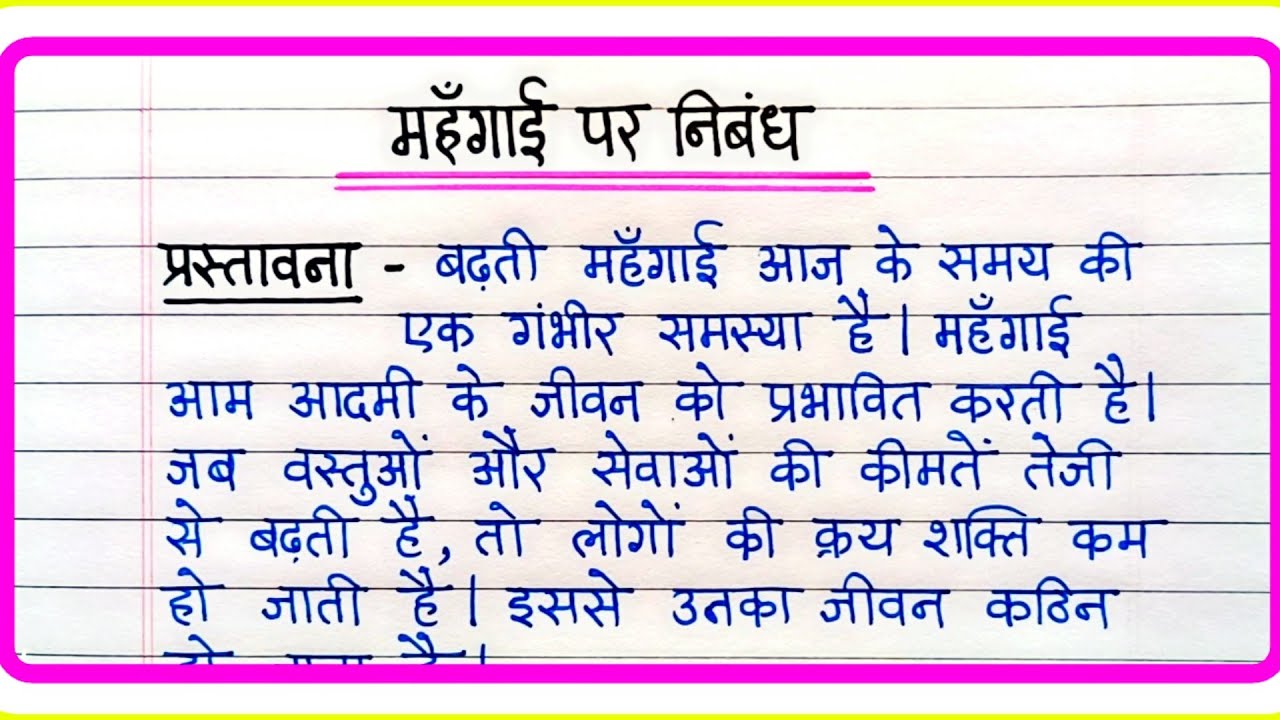 महँगाई पर निबंध
प्रस्तावना - बढ़ती महँगाई आज के समय की
एक गंभीर समस्या है। महँगाई
आम आदमी के जीवन को प्रभावित करती है।
जब वस्तुओं और सेवाओं की कीमतें तेजी
से बढ़ती हैं, तो लोगों की क्रय शक्ति कम
हो जाती है। इससे उनका जीवन कठिन